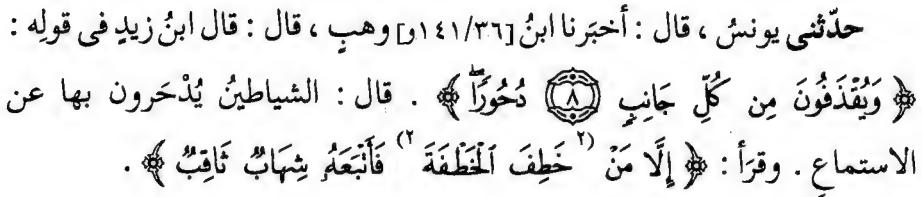 حدّثنى يونسُ ، قال : أخبَرنا ابنُ [١٤١/٣٦و] وهبٍ ، قال : قال ابنُ زيدٍ فى قولِه :
﴿ وَيُقْذَفُونَ مِن كُلِّ جَانِبٍ ﴿٨﴾ دُحُورًا ﴾ . قال : الشياطينُ يُدْحَرون بها عن
الاستماعِ . وقرَأ : ﴿ إِلَّا مَنْ (٢ خَطِفَ الْخَطْفَةَ ٢) فَأَتْبَعَهُ شِهَابٌ ثَاقِبٌ ﴾ .